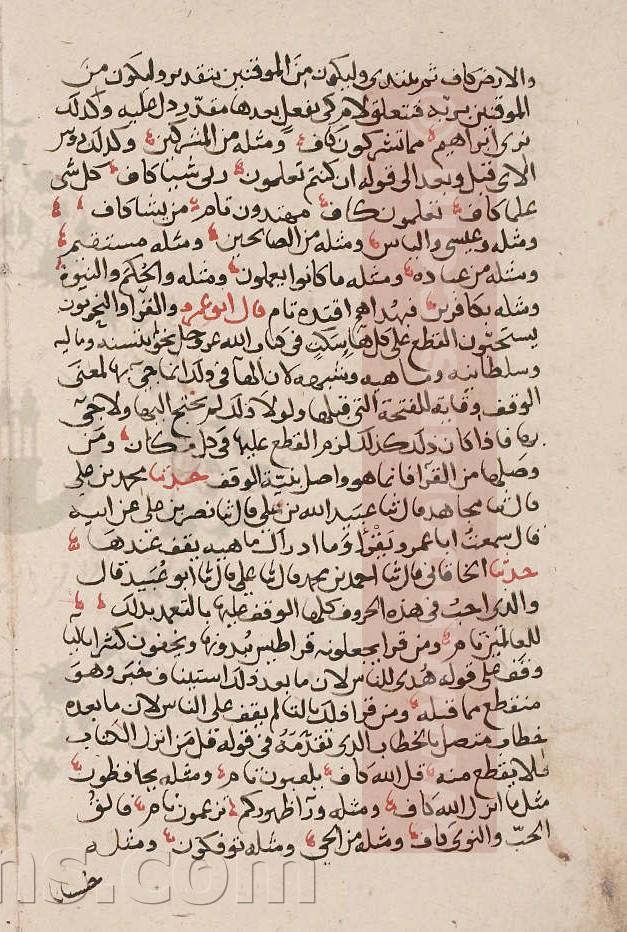 والارض كاف ثم يبتدئ وليكون من الموقنين بتقدير وليكون من
الموقنين نريه فتتعلق لام كي بفعل بعدها مقدر دل عليه وكذلك
نري ابراهيم مما تشركون كاف ومثله من المشركين وكذلك روس
الاي قبل وبعد الى قوله ان كنتم تعلمون ربي شيا كاف كل شي
علما كاف تعلمون كاف مهتدون تام من نشا كاف
ومثله وعيسى والياس ومثله من الصالحين ومثله مستقيم
ومثله من عباده ومثله ما كانوا يعملون ومثله والحكم والنبوة
ومثله بكافرين فبهداهم اقتده تام قال ابو عمرو والقرا والنحويون
يستحبون القطع على كل ها سكت في كتاب الله عز وجل نحو لم يتسنه وماليه
وسلطانيه وماهيه وشبهه لان الها في ذلك انما جيء بها لمعنى
الوقف وقاية للفتحة التي قبلها ولولا ذلك لم يحتج اليها ولا جيء
بها فاذا كان ذلك كذلك لزم القطع عليها في كل مكان ومن
وصلها من القرا فانما هو واصل بنية الوقف حدثنا محمد بن علي
قال ثنا مجاهد قال ثنا عبيد الله بن علي قال ثنا نصر بن علي عن ابيه
قال سمعت ابا عمرو يقرا وما ادراك ما هيه يقف عندها
حدثنا الخاقاني قال ثنا احمد بن محمد قال ثنا علي قال ثنا ابو عبيد قال
والذي احب في هذه الحروف كلها الوقف عليها بالتعمد لذلك
للعالمين تام ومن قرا يجعلونه قراطيس يبدونها ويخفون كثيرا باليا
وقف على قوله هدى للناس لان ما بعد ذلك استيناف وخبر وهو
منقطع مما قبله ومن قرا ذلك بالتا لم يقف على الناس لان ما بعده
خطاب متصل بالخطاب الذي تقدمه في قوله قل من انزل الكتاب
فلا يقطع منه قل الله كاف يلعبون تام ومثله يحافظون
مثل ما انزل الله كاف ومثله ورا ظهوركم تزعمون تام فالق
الحب والنوى كاف ومثله من الحي ومثله توفكون ومثله
حسبانا
ns.com